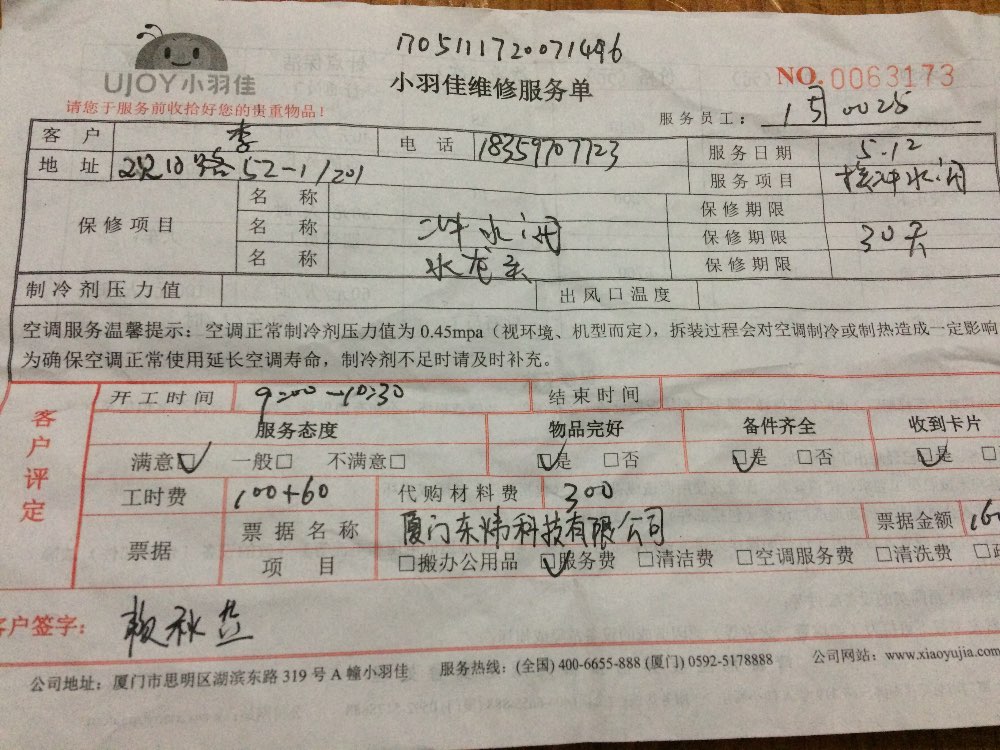 1705111720071496
UJOY小羽佳
小羽佳维修服务单
NO. 0063173
请您于服务前收拾好您的贵重物品！
服务员工： 0025
客 户 李 电 话 18359707723 服务日期 5.12
地 址 52-1/201 服务项目 换冲水阀
保修项目 名 称 保修期限
名 称 冲水阀 保修期限 30天
名 称 水龙头 保修期限
制冷剂压力值 出风口温度
空调服务温馨提示：空调正常制冷剂压力值为 0.45mpa（视环境、机型而定），拆装过程会对空调制冷或制热造成一定影响
为确保空调正常使用延长空调寿命，制冷剂不足时请及时补充。
客户评定
开工时间 9:00-10:30 结束时间
服务态度 物品完好 备件齐全 收到卡片
满意☑ 一般□ 不满意□ ☑是 □否 ☑是 □否 ☑是 □
工时费 100+60 代购材料费 300
票据 票据名称 厦门东炜科技有限公司 票据金额 160
项 目 □搬办公用品 ☑服务费 □清洁费 □空调服务费 □清洗费 □
客户签字：赖秋
公司地址：厦门市思明区湖滨东路 319 号 A 幢小羽佳 服务热线：(全国) 400-6655-888 (厦门) 0592-5178888 公司网站：www.xiaoyujia.com